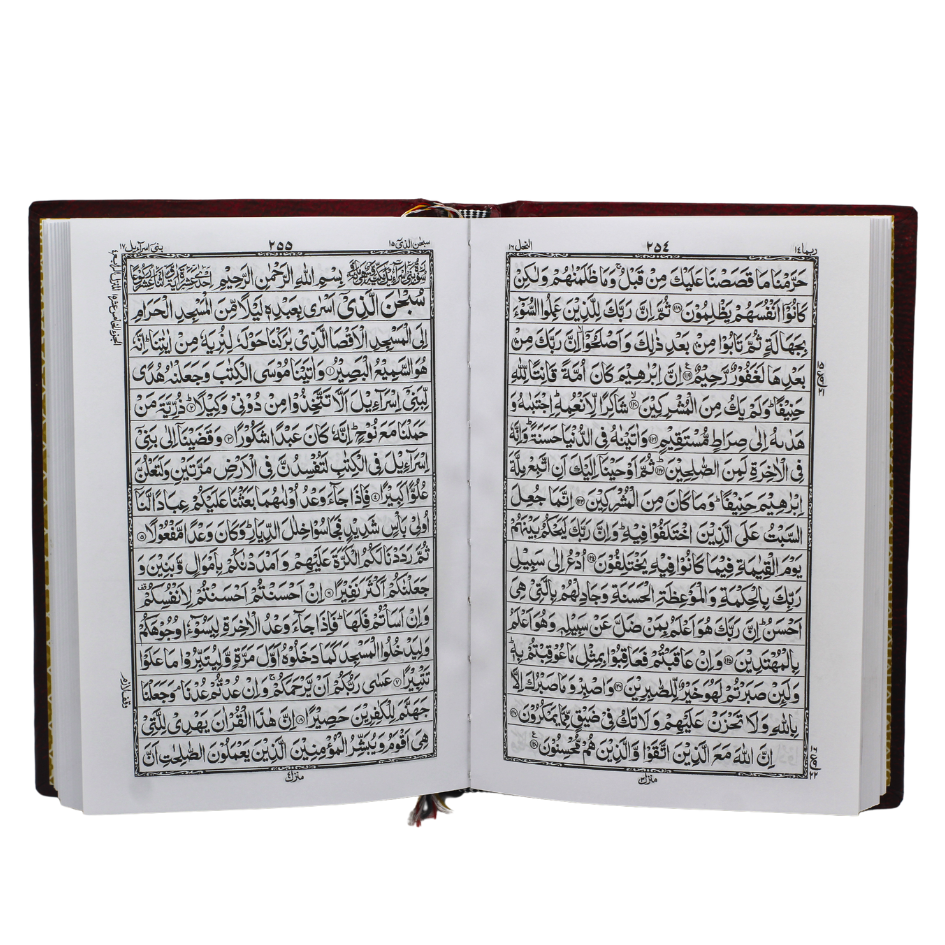 ربما ١٤
٢٥٤
النحل ١٦
حَرَّمْنَا مَا قَصَصْنَا عَلَيْكَ مِنْ قَبْلُ ۚ وَمَا ظَلَمْنٰهُمْ وَلٰكِنْ
كَانُوْٓا اَنْفُسَهُمْ يَظْلِمُوْنَ ﴿۱۱۸﴾ ثُمَّ اِنَّ رَبَّكَ لِلَّذِيْنَ عَمِلُوا السُّوْٓءَ
بِجَهَالَةٍ ثُمَّ تَابُوْا مِنْ بَعْدِ ذٰلِكَ وَاَصْلَحُوْٓا اِنَّ رَبَّكَ مِنْ
بَعْدِهَا لَغَفُوْرٌ رَّحِيْمٌ ﴿۱۱۹﴾ اِنَّ اِبْرٰهِيْمَ كَانَ اُمَّةً قَانِتًا لِّلّٰهِ
حَنِيْفًا ؕ وَلَمْ يَكُ مِنَ الْمُشْرِكِيْنَ ﴿۱۲۰﴾ شَاكِرًا لِّاَنْعُمِهٖ ؕ اِجْتَبٰىهُ وَ
هَدٰىهُ اِلٰى صِرَاطٍ مُّسْتَقِيْمٍ ﴿۱۲۱﴾ وَاٰتَيْنٰهُ فِى الدُّنْيَا حَسَنَةً ؕ وَاِنَّهٗ
فِى الْاٰخِرَةِ لَمِنَ الصّٰلِحِيْنَ ﴿۱۲۲﴾ ثُمَّ اَوْحَيْنَآ اِلَيْكَ اَنِ اتَّبِعْ مِلَّةَ
اِبْرٰهِيْمَ حَنِيْفًا ؕ وَمَا كَانَ مِنَ الْمُشْرِكِيْنَ ﴿۱۲۳﴾ اِنَّمَا جُعِلَ
السَّبْتُ عَلَى الَّذِيْنَ اخْتَلَفُوْا فِيْهِ ؕ وَاِنَّ رَبَّكَ لَيَحْكُمُ بَيْنَهُمْ
يَوْمَ الْقِيٰمَةِ فِيْمَا كَانُوْا فِيْهِ يَخْتَلِفُوْنَ ﴿۱۲۴﴾ اُدْعُ اِلٰى سَبِيْلِ
رَبِّكَ بِالْحِكْمَةِ وَالْمَوْعِظَةِ الْحَسَنَةِ وَجَادِلْهُمْ بِالَّتِىْ هِىَ
اَحْسَنُ ؕ اِنَّ رَبَّكَ هُوَ اَعْلَمُ بِمَنْ ضَلَّ عَنْ سَبِيْلِهٖ وَهُوَ اَعْلَمُ
بِالْمُهْتَدِيْنَ ﴿۱۲۵﴾ وَاِنْ عَاقَبْتُمْ فَعَاقِبُوْا بِمِثْلِ مَا عُوْقِبْتُمْ بِهٖ ؕ
وَلَئِنْ صَبَرْتُمْ لَهُوَ خَيْرٌ لِّلصّٰبِرِيْنَ ﴿۱۲۶﴾ وَاصْبِرْ وَمَا صَبْرُكَ اِلَّا
بِاللّٰهِ وَلَا تَحْزَنْ عَلَيْهِمْ وَلَا تَكُ فِىْ ضَيْقٍ مِّمَّا يَمْكُرُوْنَ ﴿۱۲۷﴾
اِنَّ اللّٰهَ مَعَ الَّذِيْنَ اتَّقَوْا وَّالَّذِيْنَ هُمْ مُّحْسِنُوْنَ ﴿۱۲۸﴾
منزل ۳
سبحٰن الذىٓ ١٥
٢٥٥
بنىٓ اسرآءيل ١٧
بِسْمِ اللّٰهِ الرَّحْمٰنِ الرَّحِيْمِ
سُبْحٰنَ الَّذِىْٓ اَسْرٰى بِعَبْدِهٖ لَيْلًا مِّنَ الْمَسْجِدِ الْحَرَامِ
اِلَى الْمَسْجِدِ الْاَقْصَا الَّذِىْ بٰرَكْنَا حَوْلَهٗ لِنُرِيَهٗ مِنْ اٰيٰتِنَا ؕ اِنَّهٗ
هُوَ السَّمِيْعُ الْبَصِيْرُ ﴿۱﴾ وَاٰتَيْنَا مُوْسَى الْكِتٰبَ وَجَعَلْنٰهُ هُدًى
لِّبَنِىْٓ اِسْرَآءِيْلَ اَلَّا تَتَّخِذُوْا مِنْ دُوْنِىْ وَكِيْلًا ﴿۲﴾ ذُرِّيَّةَ مَنْ
حَمَلْنَا مَعَ نُوْحٍ ؕ اِنَّهٗ كَانَ عَبْدًا شَكُوْرًا ﴿۳﴾ وَقَضَيْنَآ اِلٰى بَنِىْٓ
اِسْرَآءِيْلَ فِى الْكِتٰبِ لَتُفْسِدُنَّ فِى الْاَرْضِ مَرَّتَيْنِ وَلَتَعْلُنَّ
عُلُوًّا كَبِيْرًا ﴿۴﴾ فَاِذَا جَآءَ وَعْدُ اُوْلٰىهُمَا بَعَثْنَا عَلَيْكُمْ عِبَادًا لَّنَآ
اُولِىْ بَاْسٍ شَدِيْدٍ فَجَاسُوْا خِلٰلَ الدِّيَارِ ؕ وَكَانَ وَعْدًا مَّفْعُوْلًا ﴿۵﴾
ثُمَّ رَدَدْنَا لَكُمُ الْكَرَّةَ عَلَيْهِمْ وَاَمْدَدْنٰكُمْ بِاَمْوَالٍ وَّبَنِيْنَ وَ
جَعَلْنٰكُمْ اَكْثَرَ نَفِيْرًا ﴿۶﴾ اِنْ اَحْسَنْتُمْ اَحْسَنْتُمْ لِاَنْفُسِكُمْ
وَاِنْ اَسَاْتُمْ فَلَهَا ؕ فَاِذَا جَآءَ وَعْدُ الْاٰخِرَةِ لِيَسُوْٓءٗا وُجُوْهَكُمْ
وَلِيَدْخُلُوا الْمَسْجِدَ كَمَا دَخَلُوْهُ اَوَّلَ مَرَّةٍ وَّلِيُتَبِّرُوْا مَا عَلَوْا
تَتْبِيْرًا ﴿۷﴾ عَسٰى رَبُّكُمْ اَنْ يَّرْحَمَكُمْ ۚ وَاِنْ عُدْتُّمْ عُدْنَا ۘ وَجَعَلْنَا
جَهَنَّمَ لِلْكٰفِرِيْنَ حَصِيْرًا ﴿۸﴾ اِنَّ هٰذَا الْقُرْاٰنَ يَهْدِىْ لِلَّتِىْ
هِىَ اَقْوَمُ وَيُبَشِّرُ الْمُؤْمِنِيْنَ الَّذِيْنَ يَعْمَلُوْنَ الصّٰلِحٰتِ اَنَّ
منزل ٤